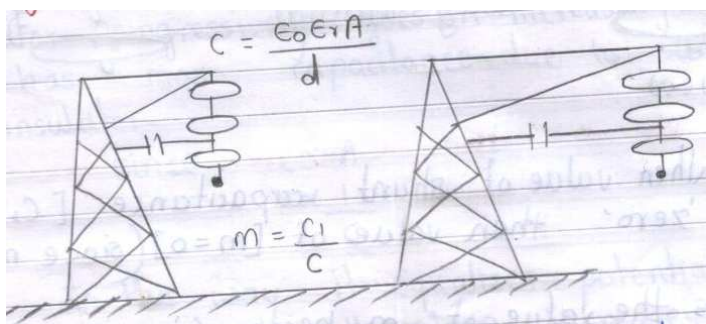 C = ϵ₀ϵᵣA / d
m = C₁ / C